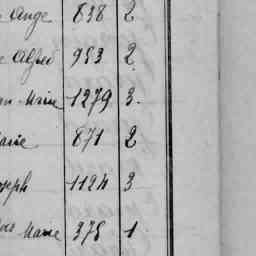 Ange 838 2
Alfred 953 2
Marie 1279 3.
Marie 871 2
Joseph 1124 3
Marie 378 1